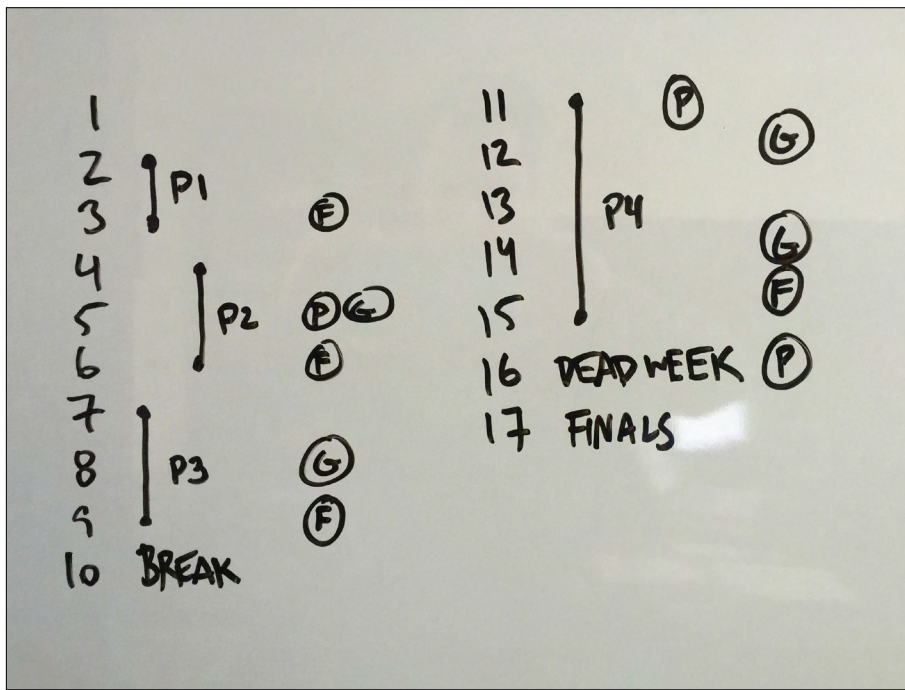 1
2 P1
3 F
4
5 P2 P G
6 F
7
8 P3 G
9 F
10 BREAK
11 P
12 G
13 P4
14 G
15 F
16 DEAD WEEK P
17 FINALS